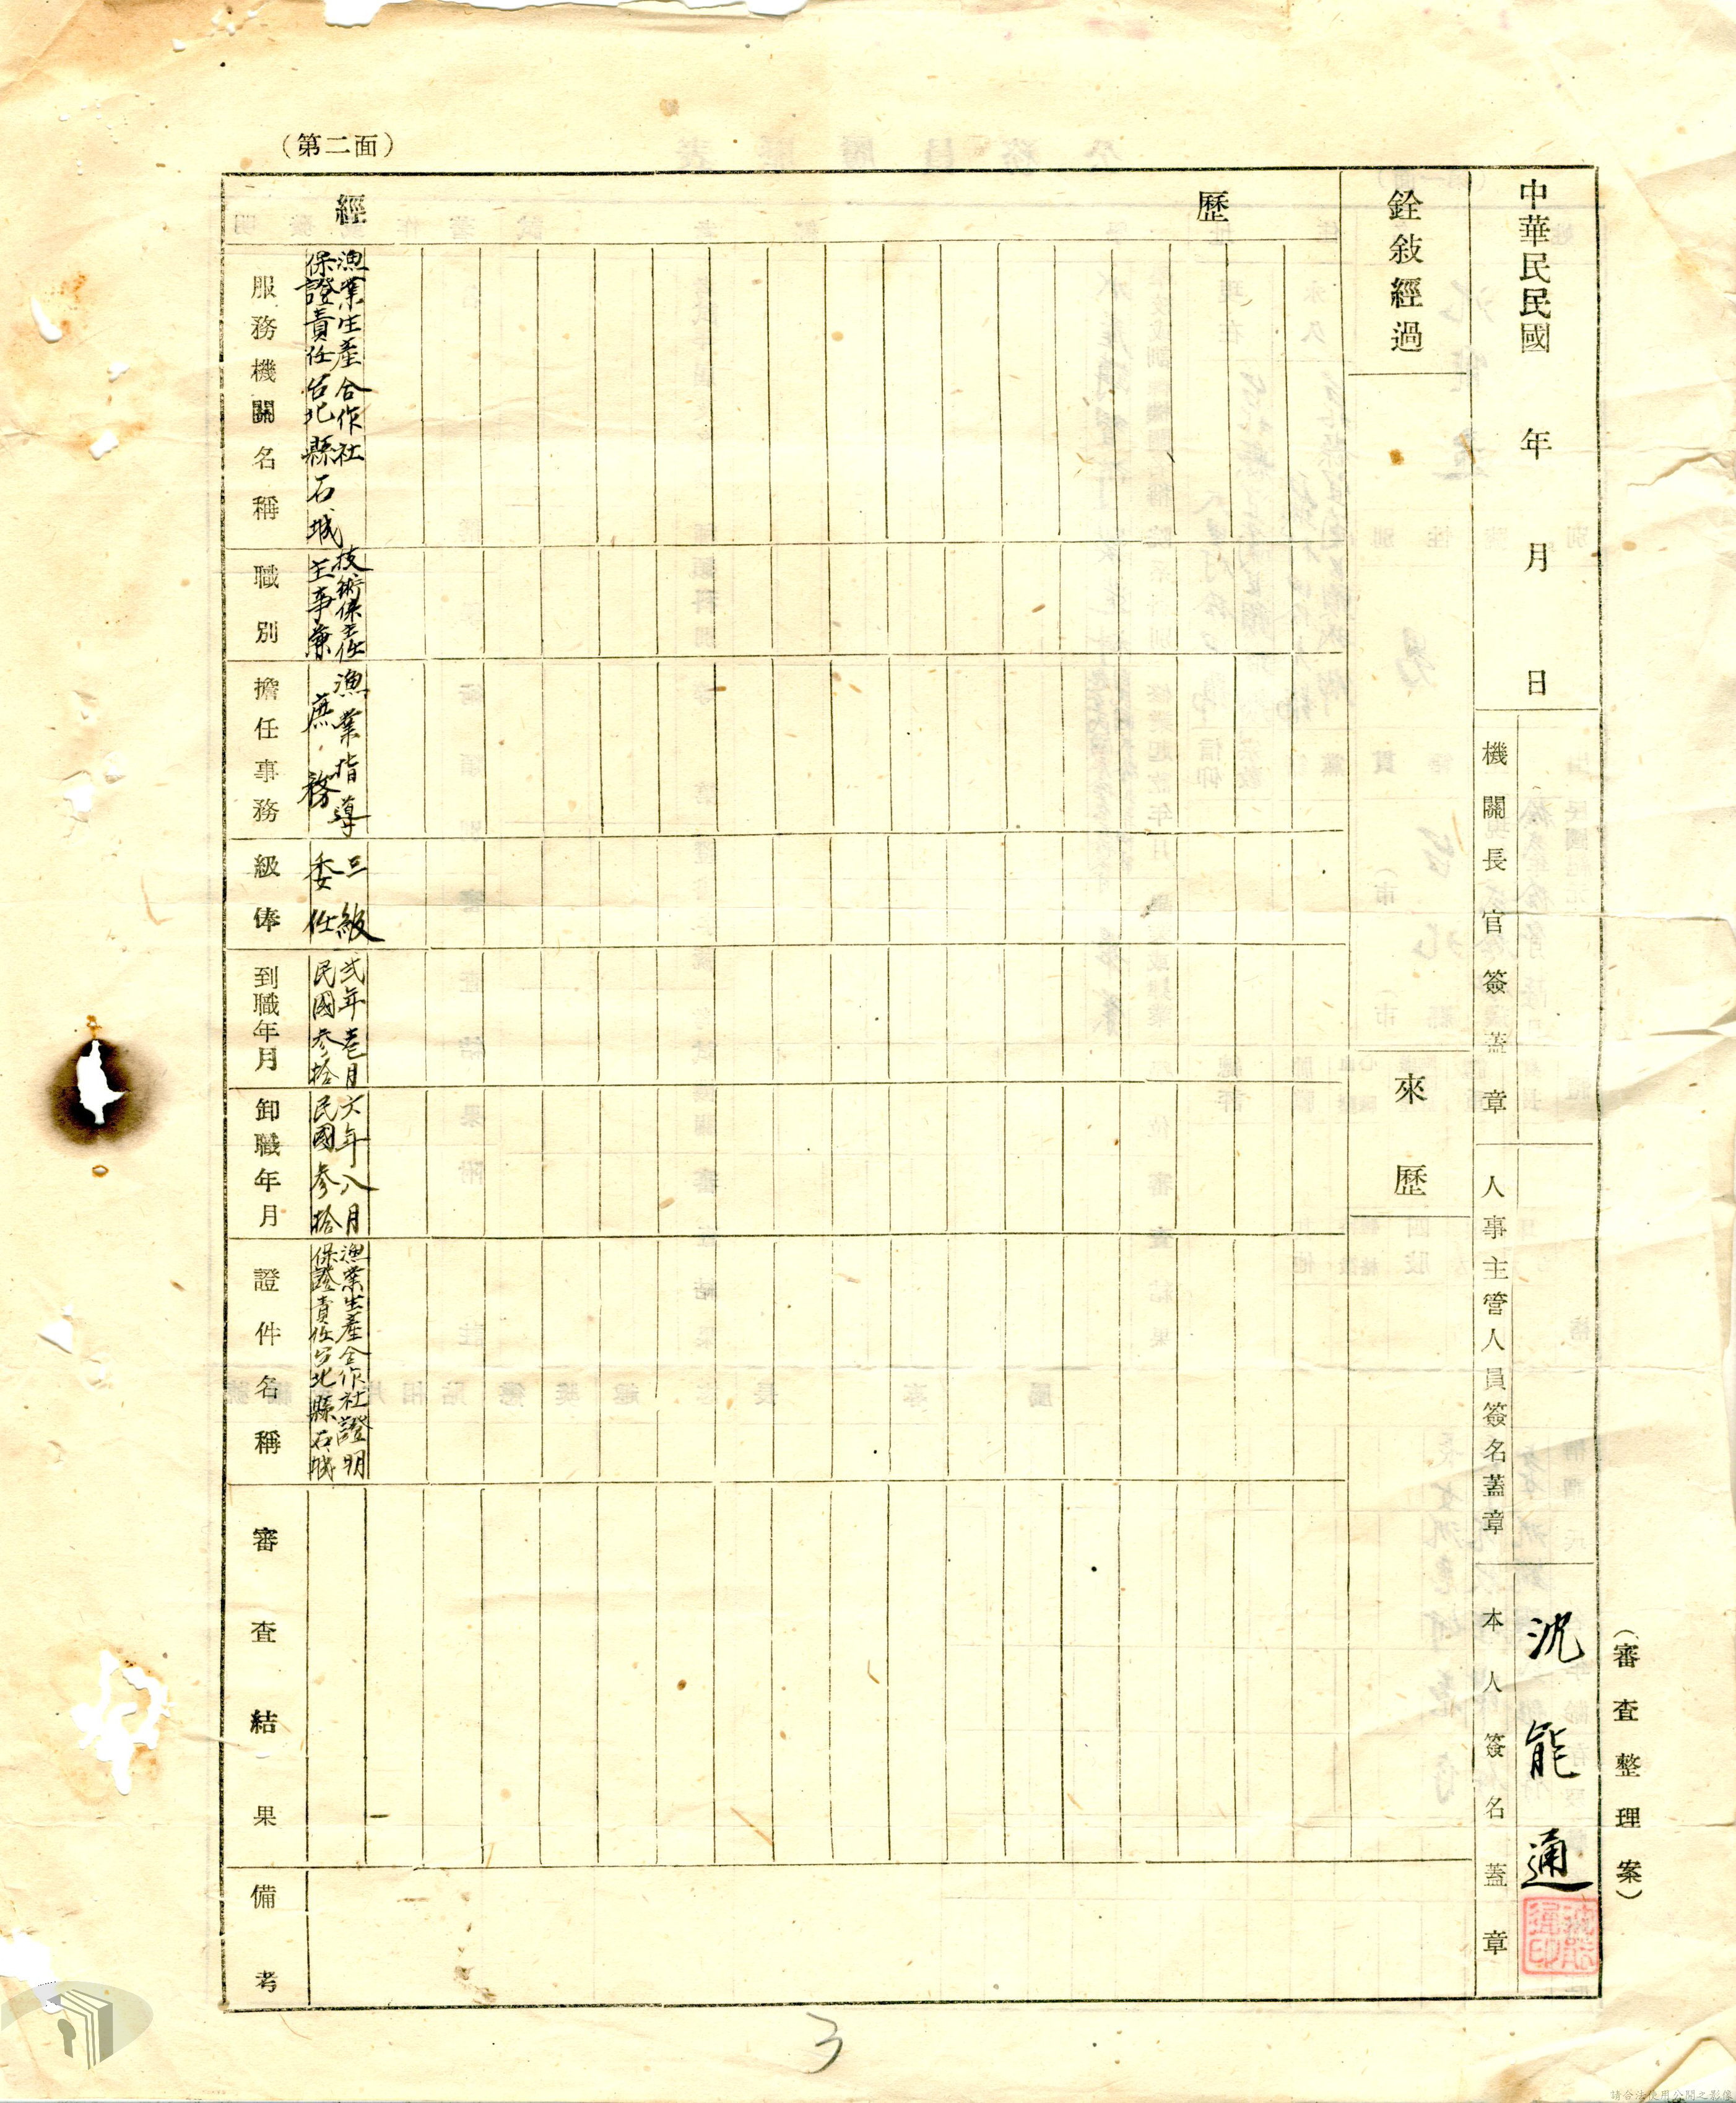 （第二面）
經歷
服務機關名稱
保證責任台北縣石城
漁業生產合作社
職別
主事兼
技術係主任
擔任事務
庶務
漁業指導
級俸
委任
三級
到職年月
民國參拾
弍年壱月
卸職年月
民國參拾
六年八月
證件名稱
保證責任台北縣石城
漁業生產合作社證明
審查結果
備考
銓敍經過
來歷
中華民民國 年 月 日
機關長官簽蓋章
人事主管人員簽名蓋章
本人簽名蓋章
沈能通
沈能通印
（審查整理案）
3
請合法使用公開之影像